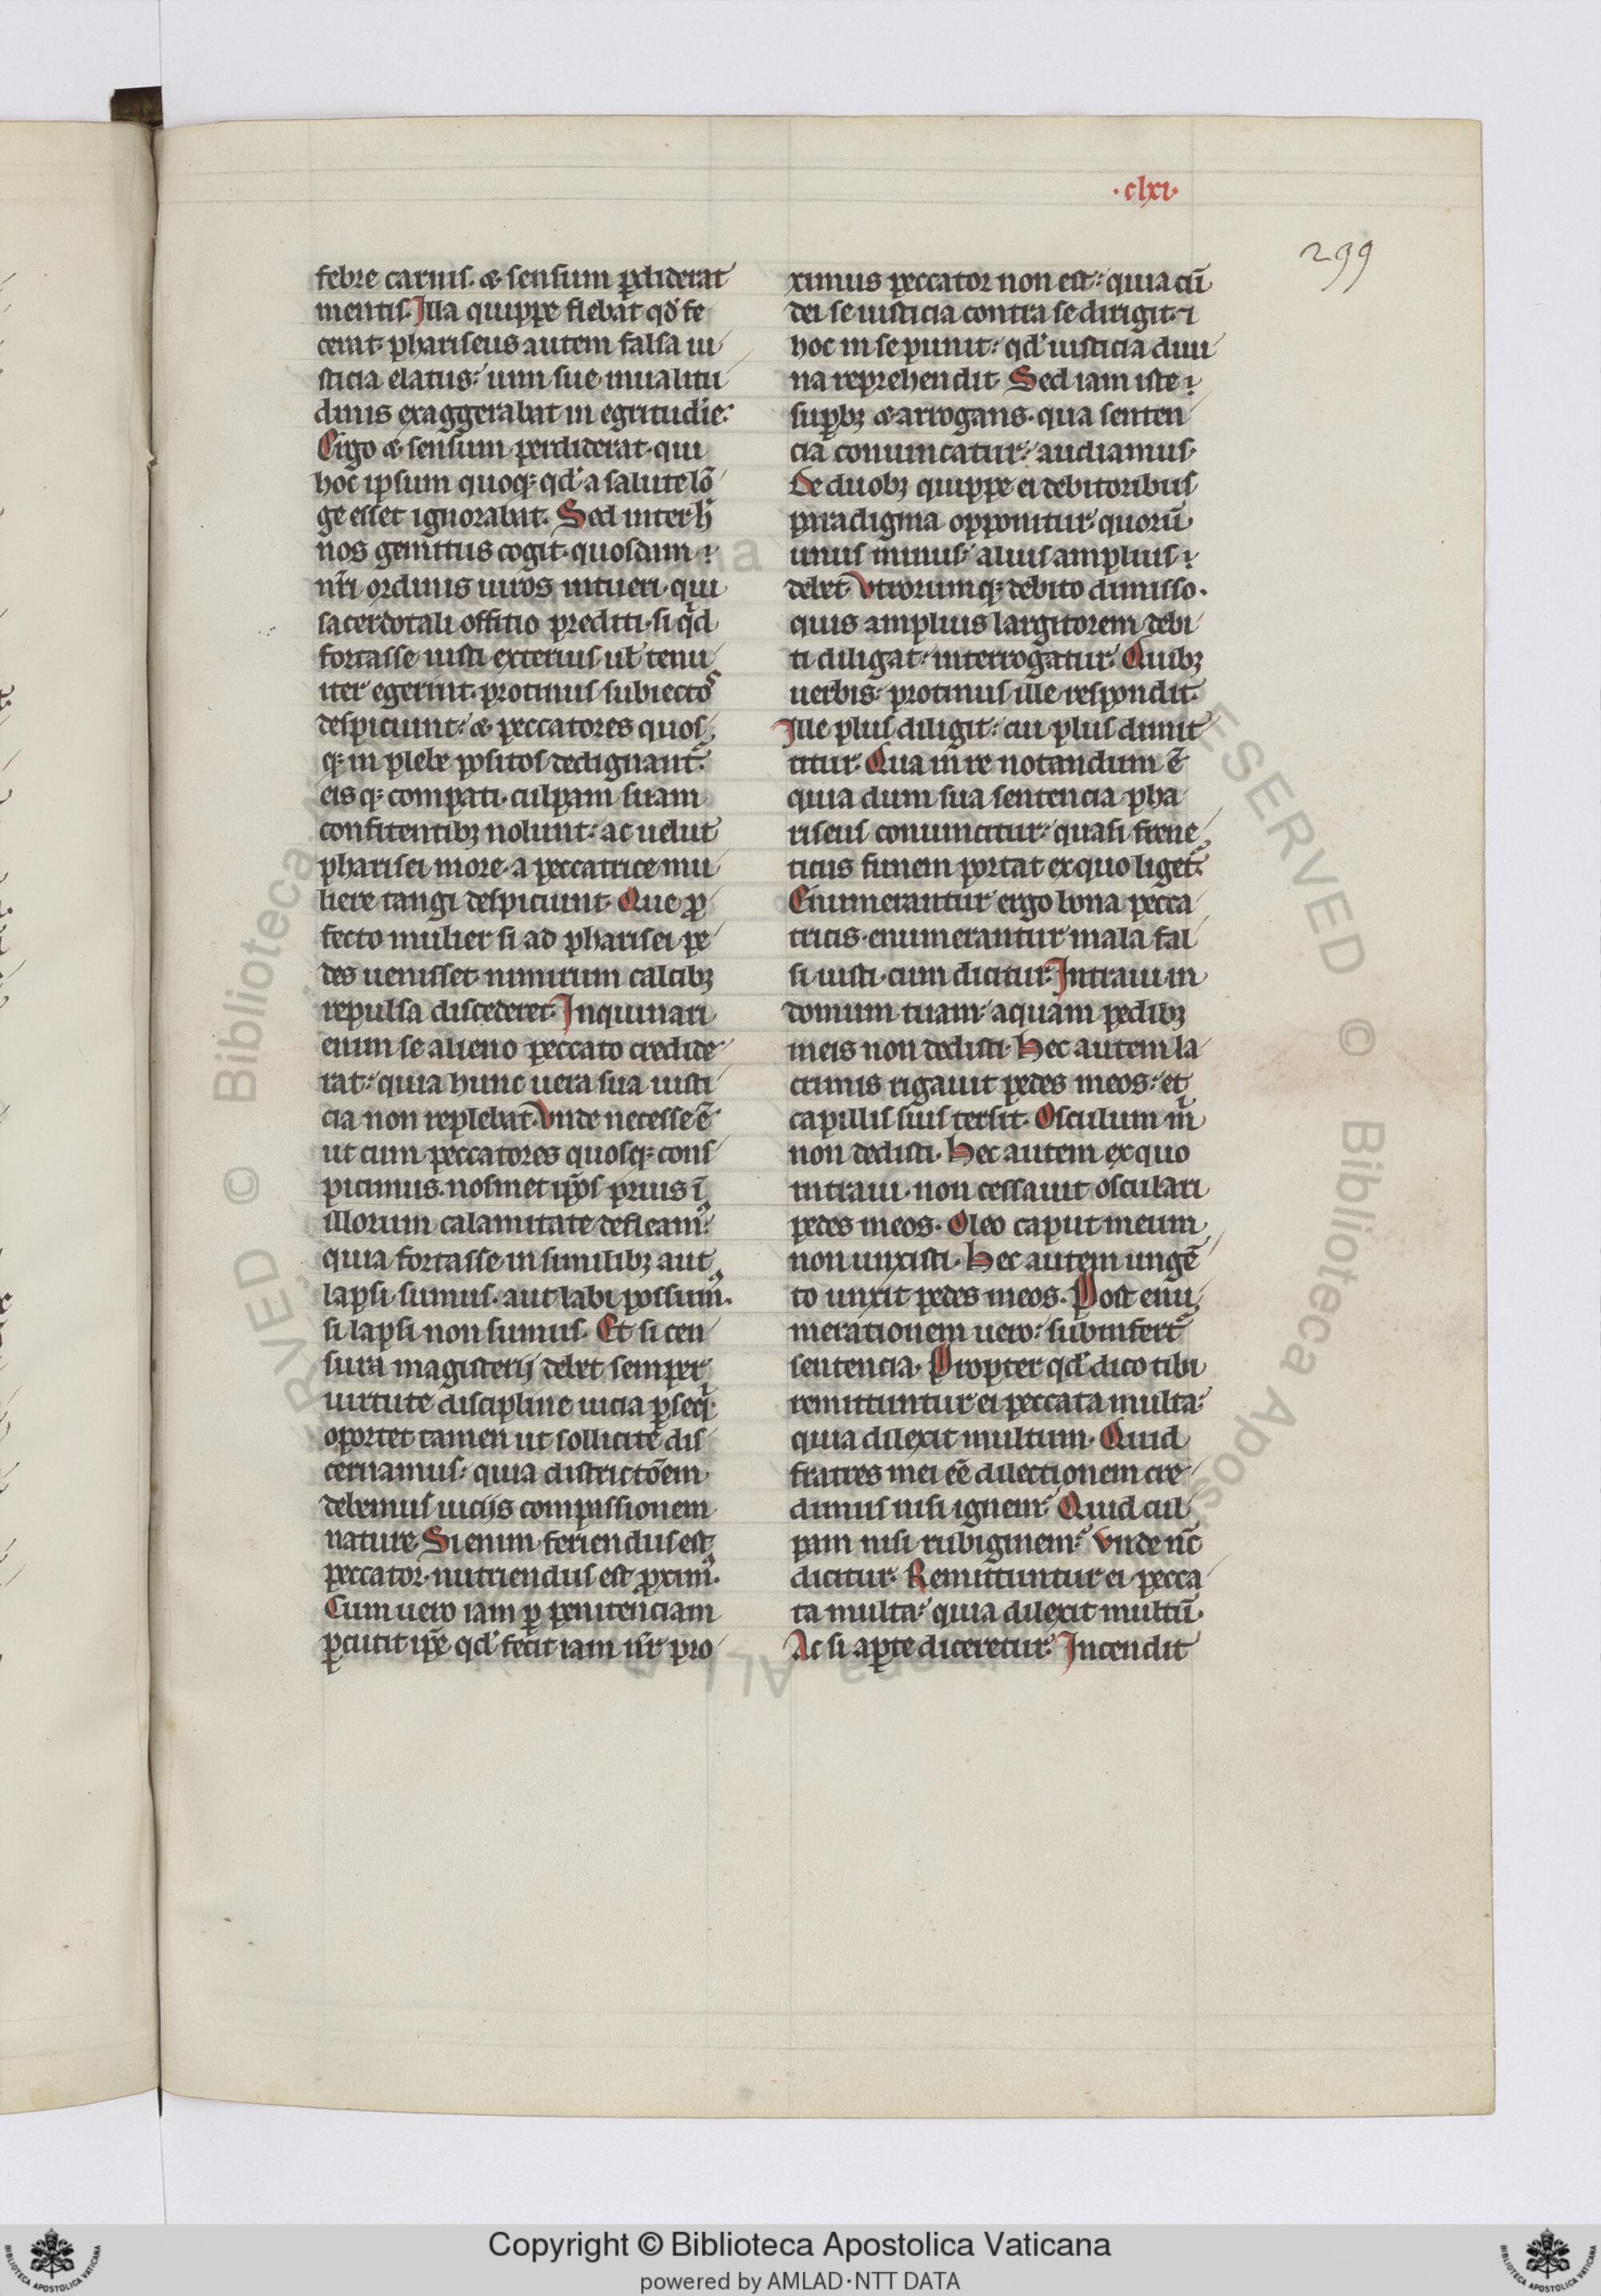 ·clxi·
299
febre carnis. & sensum p̄diderat
mentis. Illa quippe flebat qd' fe
cerat. phariseus autem falsa iu
sticia elatus: uim sue inualitu
dinis exaggerabat in egritudīe:
Ergo & sensum perdiderat. qui
hoc ipsum quoq; qd' a salute lō
ge esset ignorabat. Sed inter h̄
nos gemitus cogit. quosdam
nr̄i ordinis uiros intueri. qui
sacerdotali offitio prediti. si qd
fortasse iusti exterius ul' tenu
iter egerint. protinus subiectos
despiciunt: & peccatores quos
q; in plebe positos dedignant̄.
eisq; compati. culpam suam
confitentib; nolunt: ac uelut
pharisei more. a peccatrice mu
liere tangi despiciunt. Que p̄
fecto mulier si ad pharisei pe
des uenisset nimirum calcib;
repulsa discederet. Inquinari
enim se alieno peccato credide
rat: quia hunc uera sua iusti
cia non replebat. Vnde necesse ē
ut cum peccatores quosq; cons
picimus. nosmet ip̄os prius ī
illorum calamitate defleam':
quia fortasse in similib; aut
lapsi sumus. aut labi possum'.
si lapsi non sumus. Et si cen
sura magisterij debet semper
uirtute discipline uicia p̄seq̄.
oportet tamen ut sollicite dis
cernamus: quia districtōem
debemus uicijs compassionem
nature. Si enim feriendus est
peccator. nutriendus est p̄xim'.
Cum uero iam p̄ penitenciam
p̄cutit ip̄e qd' fecit iam nr̄ pro
ximus peccator non est: quia cū
dei se iusticia contra se dirigit. ⁊
hoc in se punit: qd' iusticia diui
na reprehendit. Sed iam iste
sup̄b; & arrogans. qua senten
cia conuincatur: audiamus.
De duob; quippe ei debitoribus
paradigma opponitur. quorū
unus minus: alius amplius
debet. Vtrorumq; debito dimisso.
quis amplius largitorem debi
ti diligat: interrogatur. Quib;
uerbis: protinus ille respondit.
Ille plus diligit: cui plus dimit
titur. Qua in re notandum ē
quia dum sua sentencia pha
riseus conuincitur: quasi frene
ticus funem portat ex quo liget̄.
Enumerantur ergo bona pecca
tricis. enumerantur mala fal
si iusti. cum dicitur. Intraui in
domum tuam: aquam pedib;
meis non dedisti. Hec autem la
crimis rigauit pedes meos: et
capillis suis tersit. Osculum m̄
non dedisti. Hec autem ex quo
intraui. non cessauit osculari
pedes meos. Oleo caput meum
non unxisti. Hec autem ungē
to unxit pedes meos. Post enu
merationem uero: subinfert̄
sentencia. Propter qd' dico tibi
remittuntur ei peccata multa:
quia dilexit multum. Quid
fratres mei eē dilectionem cre
dimus nisi ignem? Quid cul
pam nisi rubiginem? Vnde nc̄
dicitur. Remittuntur ei pecca
ta multa: quia dilexit multū.
Ac si ap̄te diceretur. Incendit
Copyright © Biblioteca Apostolica Vaticana
powered by AMLAD·NTT DATA